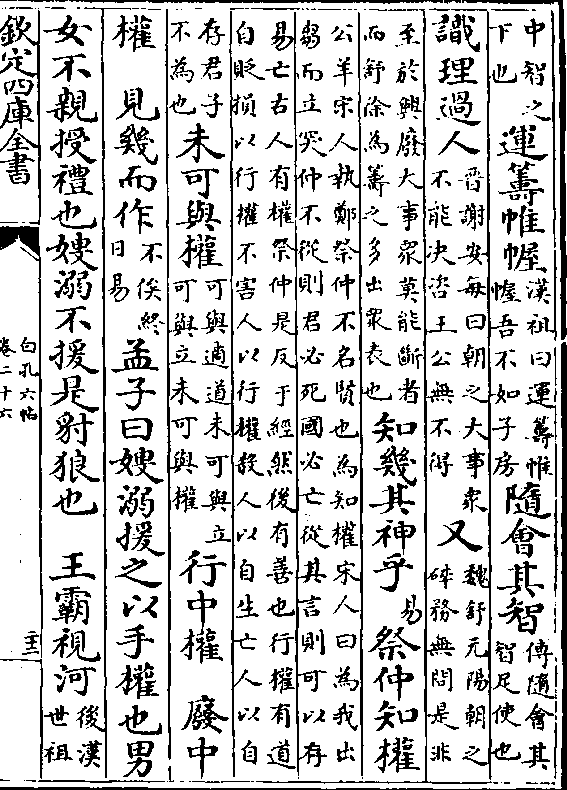 中智之
下也
運籌帷幄
漢祖曰運籌帷
幄吾不如子房
隨會其智
傳隨會其
智足使也
識理過人
晋謝安每曰朝之大事衆
不能决咨王公無不得
又
魏舒元陽朝之
碎務無問是非
至於興廢大事衆莫能斷者
而舒徐為籌之多出衆表也
知幾其神乎
易
祭仲知權
公羊宋人執鄭祭仲不名賢也為知權宋人曰為我出
而立突仲不從則君必死國必亡從其言則可以存
易亡古人有權祭仲是反于經然後有善也行權有道
自貶損以行權不害人以行權殺人以自生亡人以自
存君子
不為也
未可與權
可與適道未可與立
可與立未可與權
行中權　廢中
權　見幾而作
不俟終
日易
孟子曰嫂溺援之以手權也男
女不親授禮也嫂溺不援是豺狼也　王霸視河
後漢
世祖
欽定四庫全書
白孔六帖
卷二十六